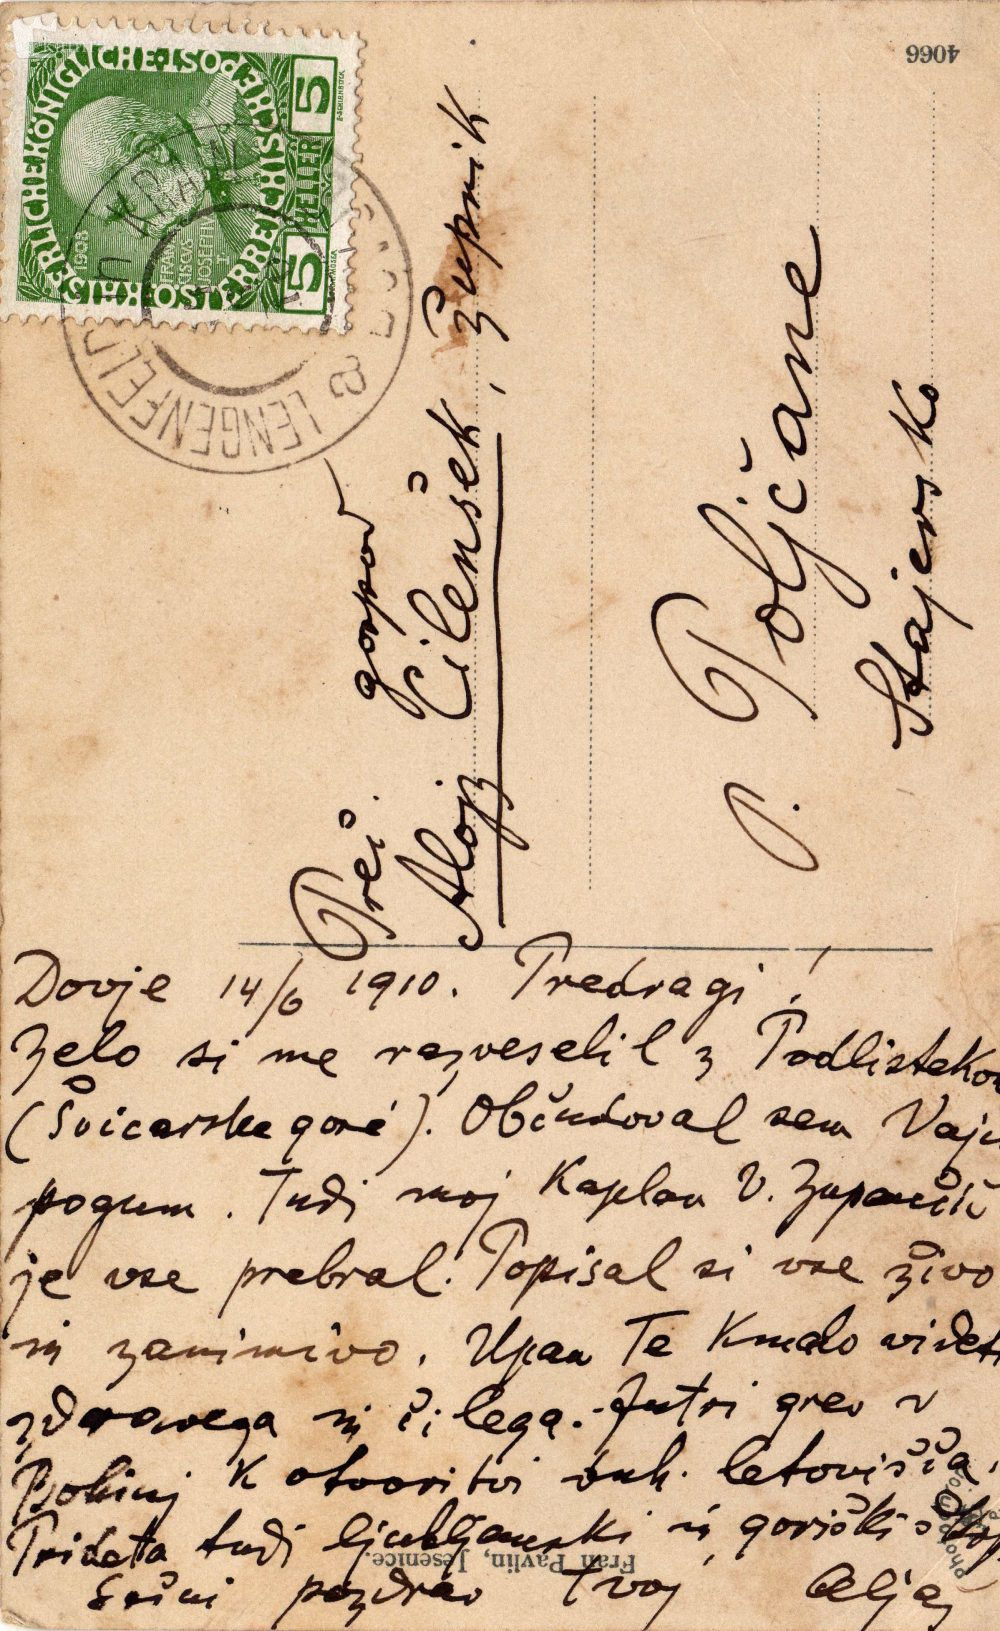 4066
KAISERLICHE KÖNIGLICHE ÖSTERREICHISCHE POST
5 HELLER 5
1908
FRANCISCUS JOSEPH I
LENGENFELD
KRAIN
Preč. gospod
Alojz Cilenšek, župnik
P. Poljčane
Štajersko
Dovje 14/6 1910. Predragi!
Zelo si me razveselil z Podlistekom
(Švicarske goré). Občudoval sem Vaju
pogum. Tudi moj Kaplan V. Zupančič
je vse prebral. Popisal si vse živo
in zanimivo. Upam Te kmalo videti
zdravega in čilega. Jutri grem v
Bohinj k otvoritvi duh. letovišča.
Prideta tudi ljubljanski in goriški škof.
Srčni pozdrav Tvoj Aljaž
Fran Pavlin, Jesenice.